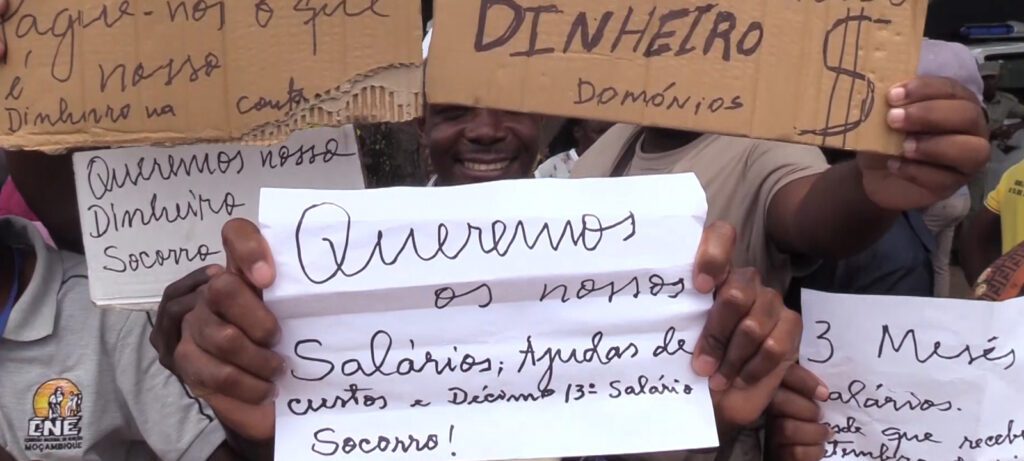 Pague-nos o que
é nosso
Dinheiro na conta
DINHEIRO $
DOMÓNIOS
Queremos nosso
Dinheiro
Socorro
Queremos
os nossos
Salários; Ajudas de
custos e Décimo 13º Salário
Socorro!
3 Mesés
alários.
que receb
CNE
MOÇAMBIQUE